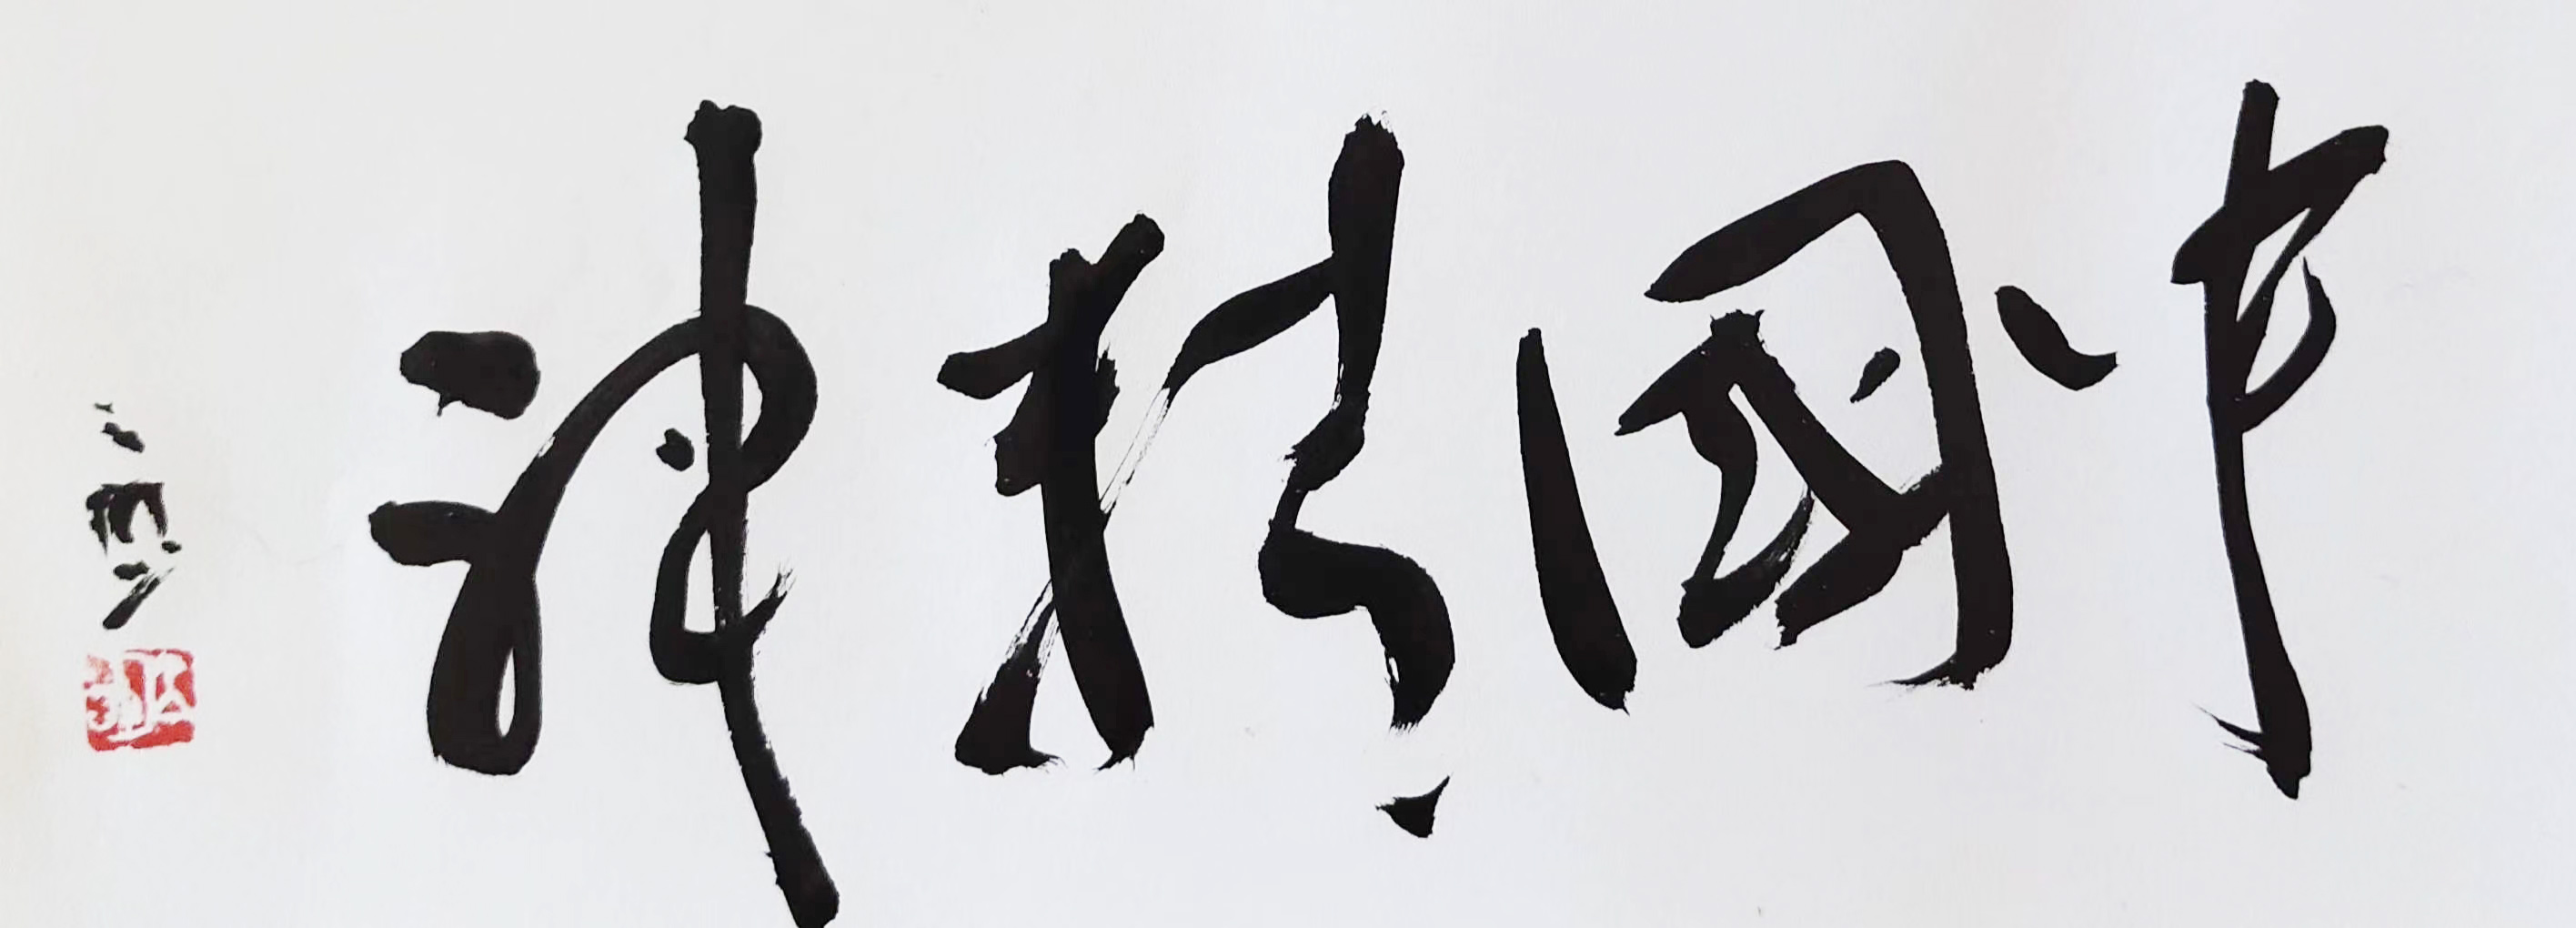 中國精神